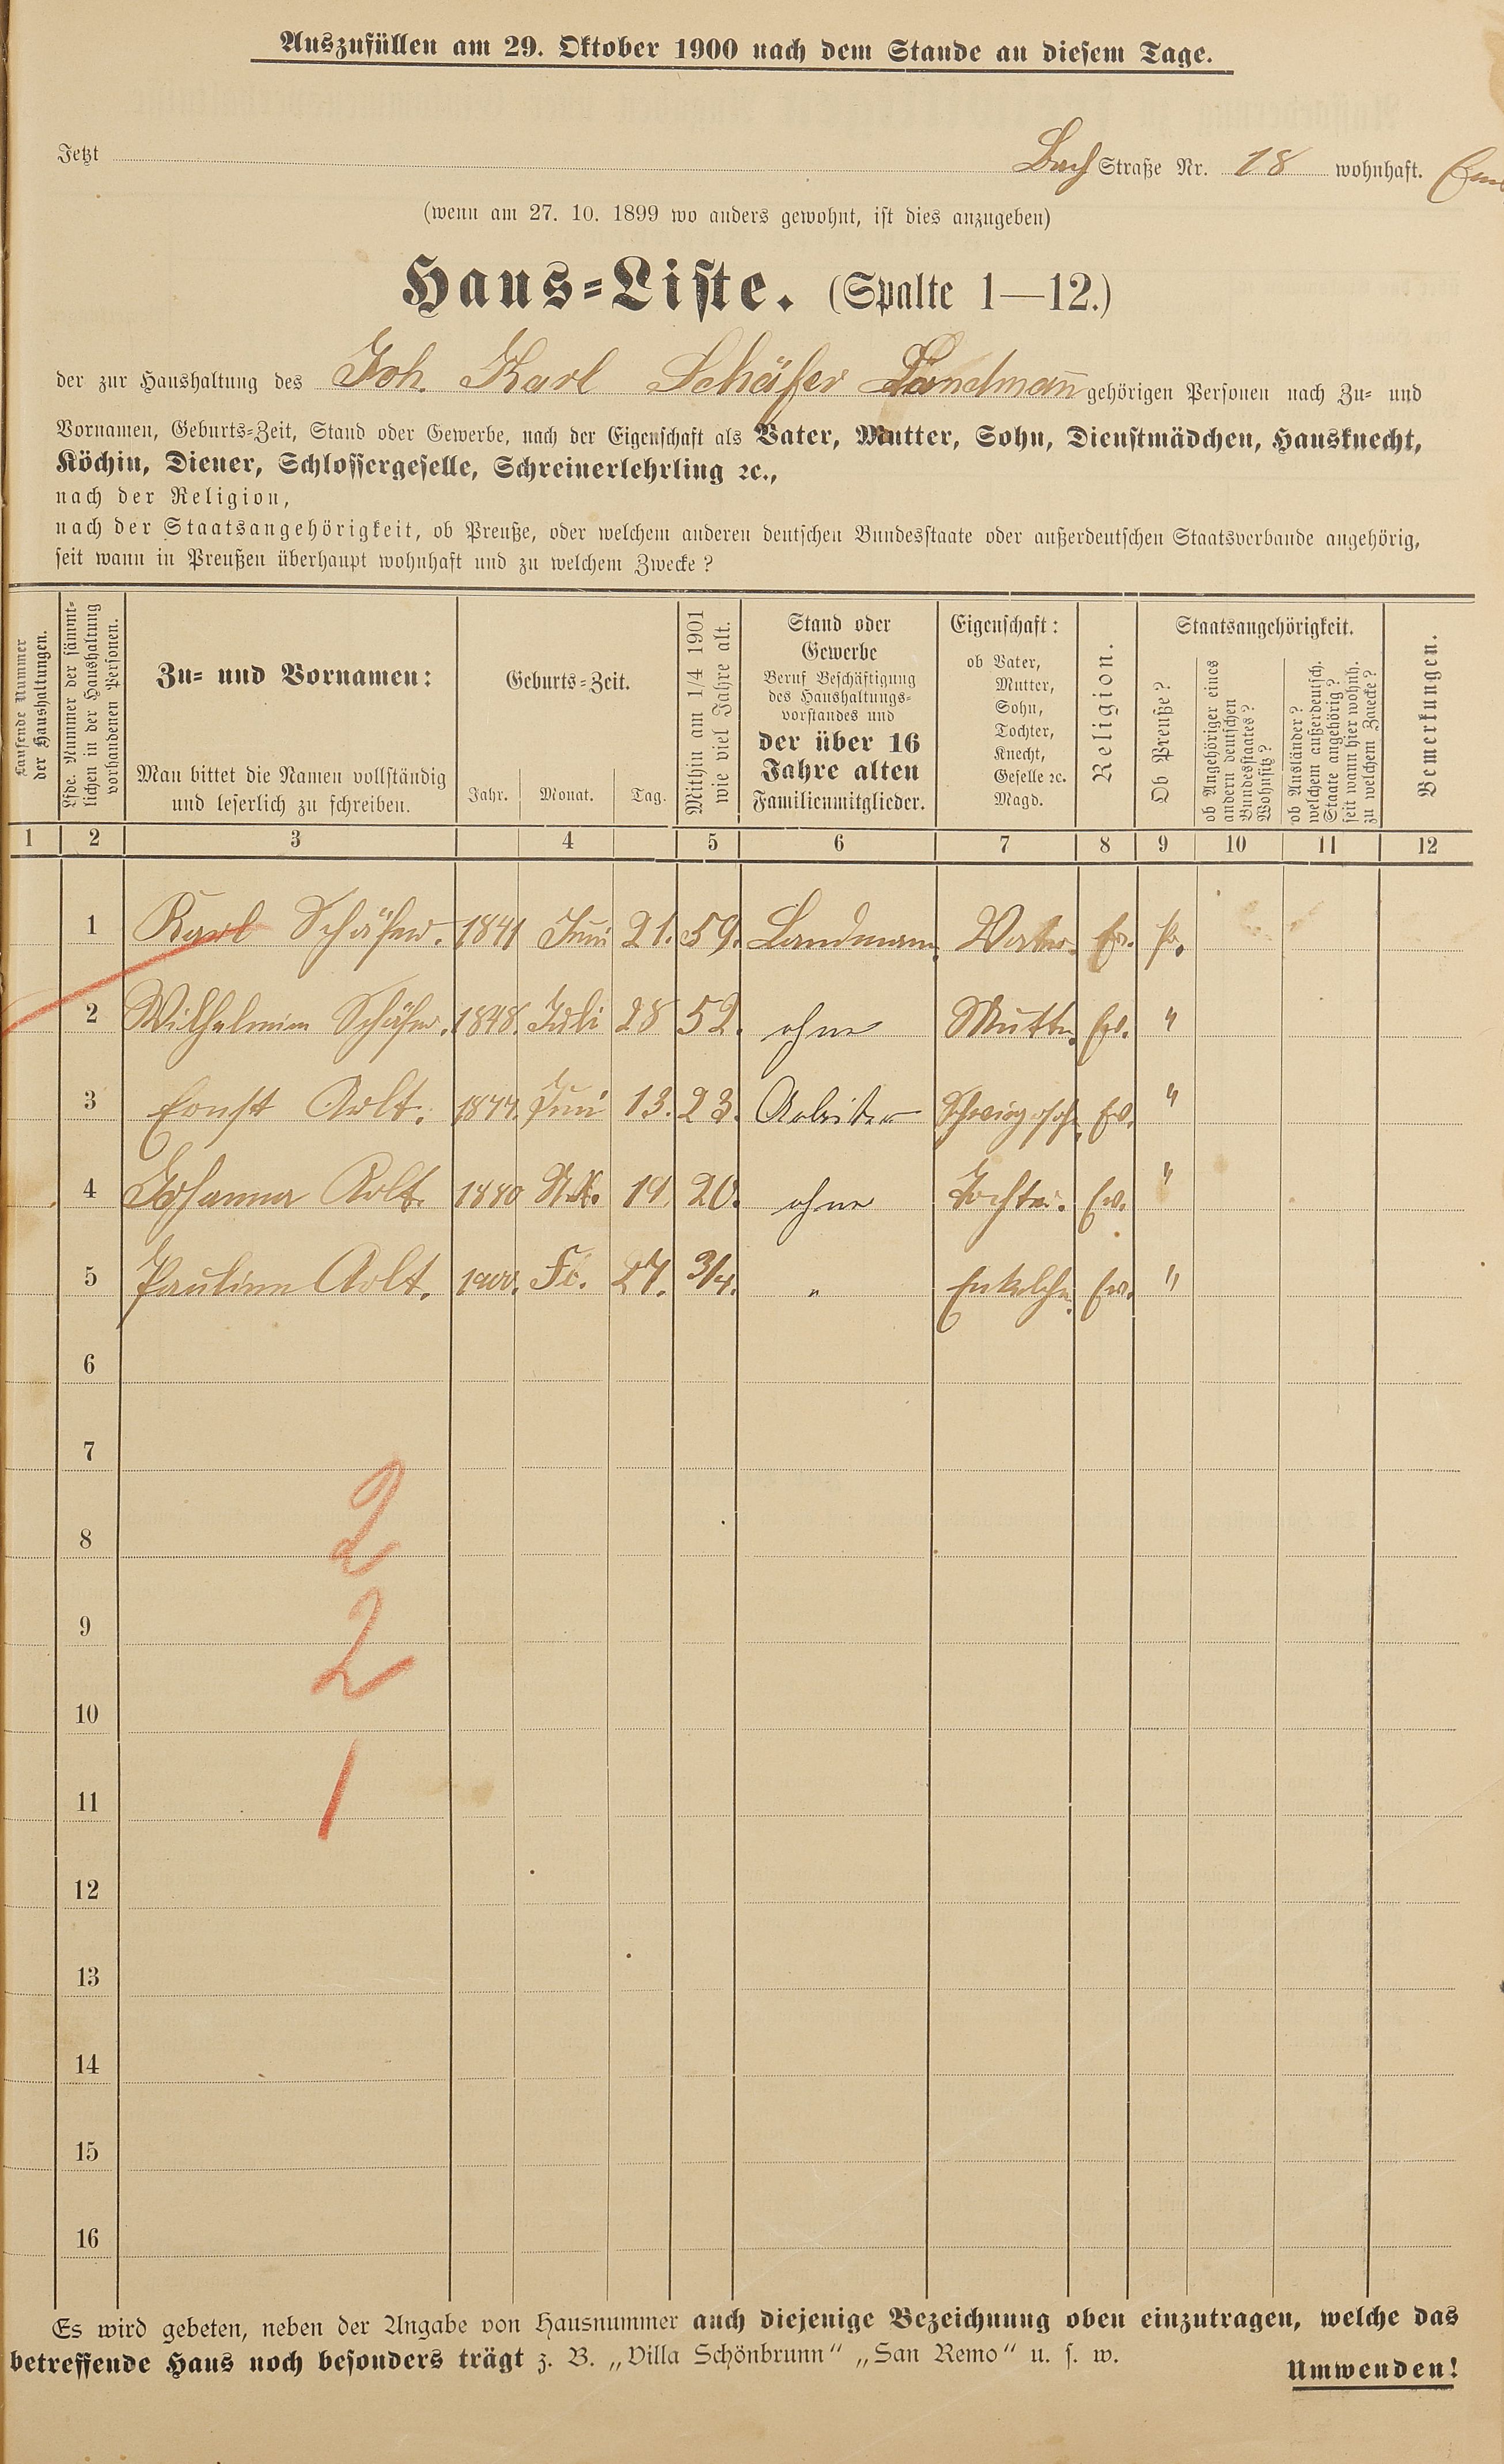 Auszufüllen am 29. Oktober 1900 nach dem Stande an diesem Tage.
Jetzt Bach Straße Nr. 18 wohnhaft.
(wenn am 27. 10. 1899 wo anders gewohnt, ist dies anzugeben)
Haus-Liste. (Spalte 1—12.)
der zur Haushaltung des Joh. Karl Schäfer Landmann gehörigen Personen nach Zu- und
Vornamen, Geburts-Zeit, Stand oder Gewerbe, nach der Eigenschaft als Vater, Mutter, Sohn, Dienstmädchen, Hausknecht,
Köchin, Diener, Schlossergeselle, Schreinerlehrling ꝛc.,
nach der Religion,
nach der Staatsangehörigkeit, ob Preuße, oder welchem anderen deutschen Bundesstaate oder außerdeutschen Staatsverbande angehörig,
seit wann in Preußen überhaupt wohnhaft und zu welchem Zwecke?
Laufende Nummer
der Haushaltungen.
Lfde. Nummer der sämmt-
lichen in der Haushaltung
vorhandenen Personen.
Zu- und Vornamen:
Man bittet die Namen vollständig
und leserlich zu schreiben.
Geburts-Zeit.
Jahr. Monat. Tag.
Mithin am 1/4 1901
wie viel Jahre alt.
Stand oder
Gewerbe
Beruf Beschäftigung
des Haushaltungs-
vorstandes und
der über 16
Jahre alten
Familienmitglieder.
Eigenschaft:
ob Vater,
Mutter,
Sohn,
Tochter,
Knecht,
Geselle ꝛc.
Magd.
Religion.
Staatsangehörigkeit.
Ob Preuße?
ob Angehöriger eines
andern deutschen
Bundesstaates?
Wohnsitz?
ob Ausländer?
welchem außerdeutsch.
Staate angehörig?
seit wann hier wohnh.
zu welchem Zwecke?
Bemerkungen.
1 2 3 4 5 6 7 8 9 10 11 12
1 Karl Schäfer. 1841 Juni 21. 59. Landmann. Vater. Ev. Pr.
2 Wilhelmine Schäfer. 1848. Juli 28 52. ohne Mutter. Ev. "
3 Ernst Arlt. 1877. Juni 13. 23. Arbeiter Schwiegersohn. Ev. "
4 Johanna Arlt. 1880 14 20. ohne Tochter. Ev. "
5 Pauline Arlt. 1900. Fe. 27. 3/4. " Enkelchen. Ev. "
6
7
2
8
9
2
10
11
1
12
13
14
15
16
Es wird gebeten, neben der Angabe von Hausnummer auch diejenige Bezeichnung oben einzutragen, welche das
betreffende Haus noch besonders trägt z. B. „Villa Schönbrunn“ „San Remo“ u. s. w.
Umwenden!